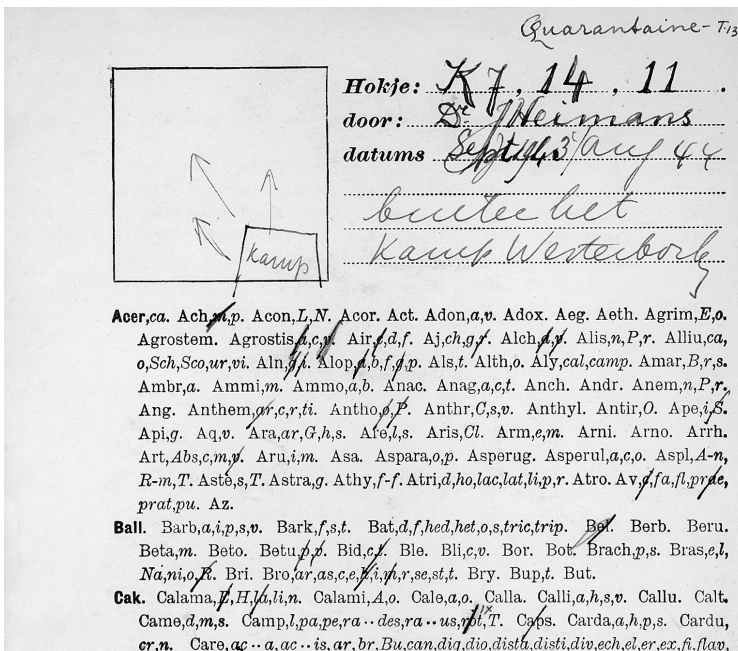 Quarantaine - T.13
Hokje: K7.14.11.
door: Dr J Heimans
datums Sept 1943/aug 44
buiten het
Kamp Westerbork
kamp
Acer,ca. Ach,m,p. Acon,L,N. Acor. Act. Adon,a,v. Adox. Aeg. Aeth. Agrim,E,o.
Agrostem. Agrostis,a,c,v. Air,c,d,f. Aj,ch,g,r. Alch,a,v. Alis,n,P,r. Alliu,ca,
o,Sch,Sco,ur,vi. Aln,g,i. Alop,a,b,f,g,p. Als,t. Alth,o. Aly,cal,camp. Amar,B,r,s.
Ambr,a. Ammi,m. Ammo,a,b. Anac. Anag,a,c,t. Anch. Andr. Anem,n,P,r.
Ang. Anthem,ar,c,r,ti. Antho,o,P. Anthr,C,s,v. Anthyl. Antir,O. Ape,i,S.
Api,g. Aq,v. Ara,ar,G,h,s. Are,l,s. Aris,Cl. Arm,e,m. Arni. Arno. Arrh.
Art,Abs,c,m,v. Aru,i,m. Asa. Aspara,o,p. Asperug. Asperul,a,c,o. Aspl,A-n,
R-m,T. Aste,s,T. Astra,g. Athy,f-f. Atri,d,ho,lac,lat,li,p,r. Atro. Av,e,fa,fl,prae,
prat,pu. Az.
Ball. Barb,a,i,p,s,v. Bark,f,s,t. Bat,d,f,hed,het,o,s,tric,trip. Bel. Berb. Beru.
Beta,m. Beto. Betu,p,v. Bid,c,t. Ble. Bli,c,v. Bor. Bot. Brach,p,s. Bras,e,l,
Na,ni,o,R. Bri. Bro,ar,as,c,e,h,i,m,r,se,st,t. Bry. Bup,t. But.
Cak. Calama,E,H,la,li,n. Calami,A,o. Cale,a,o. Calla. Calli,a,h,s,v. Callu. Calt.
Came,d,m,s. Camp,l,pa,pe,ra··des,ra··us,rot,T. Caps. Carda,a,h,p,s. Cardu,
cr,n. Care,ac··a,ac··is,ar,br,Bu,can,dig,dio,dista,disti,div,ech,el,er,ex,fi,flav,